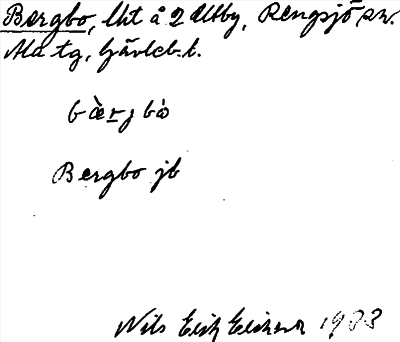 Bergbo, lht å 2 Ålby, Rengsjö sn.
Ala tg, Gävleb. l.
bær̲j bò
Bergbo jb
Nils Erik Elisson 1933